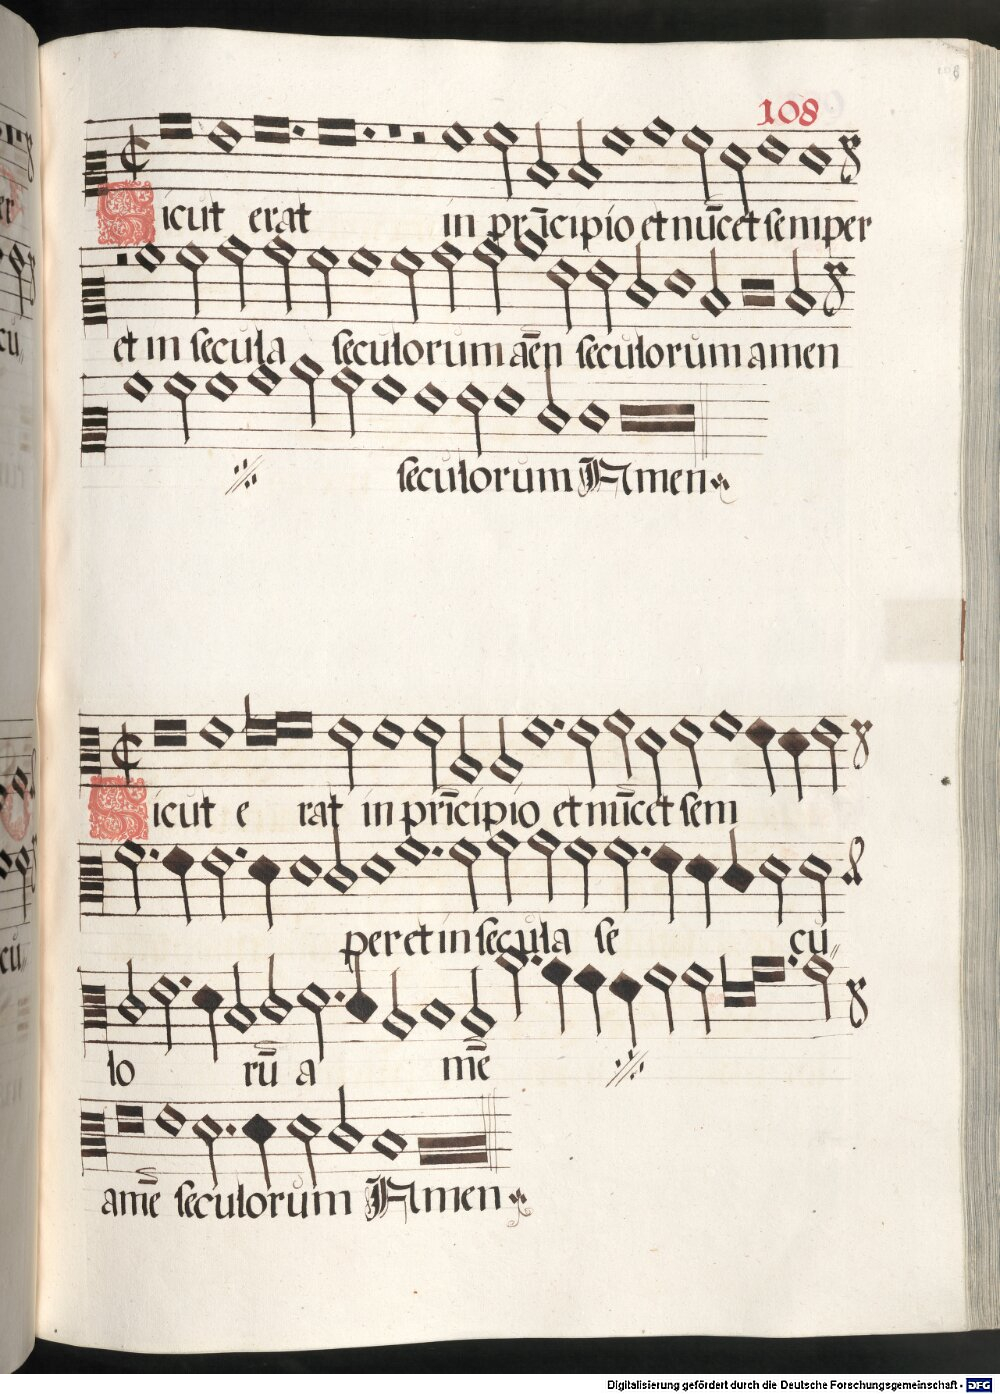 108
Sicut erat in prīcipio et nūc et semper
et in secula seculorum aēn seculorum amen
seculorum Amen
Sicut e rat in prīcipio et nūc et sem
per et in secula se cu
lo rū a mē
amē seculorum Amen
Digitalisierung gefördert durch die Deutsche Forschungsgemeinschaft - DFG